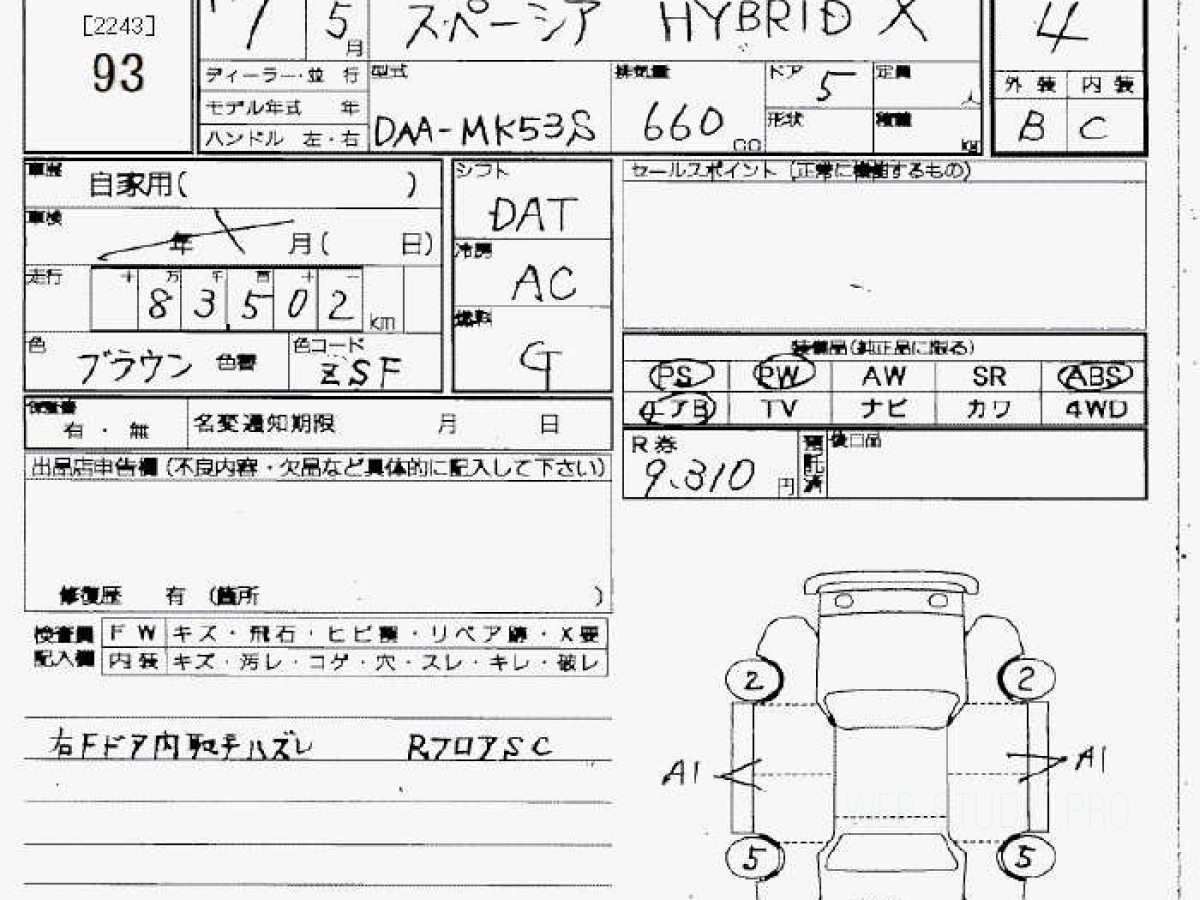 [2243]
93
5月
スペーシア HYBRID X
4
ディーラー・並行
モデル年式 年
ハンドル 左・右
型式
DAA-MK53S
排気量
660
CC
ドア 5
定員
人
形状
積載
kg
外装 内装
B C
車歴
自家用( )
車検
年 月( 日)
走行
十 万 千 百 十 一
8 3 5 0 2 km
色
ブラウン 色替
色コード
ZSF
シフト
DAT
冷房
AC
燃料
G
セールスポイント (正常に機能するもの)
装備品(純正品に限る)
PS PW AW SR ABS
エアB TV ナビ カワ 4WD
保証書
有・無
名変通知期限 月 日
R券
9,310 円
預託済
後日品
出品店申告欄(不良内容・欠品など具体的に記入して下さい)
修復歴 有 (箇所 )
検査員記入欄
FW キズ・飛石・ヒビ割・リペア跡・X要
内装 キズ・汚レ・コゲ・穴・スレ・キレ・破レ
右Fドア内取手ハズレ RフロアSC
2 2
A1 A1
5 5
WEB STUDIO PRO